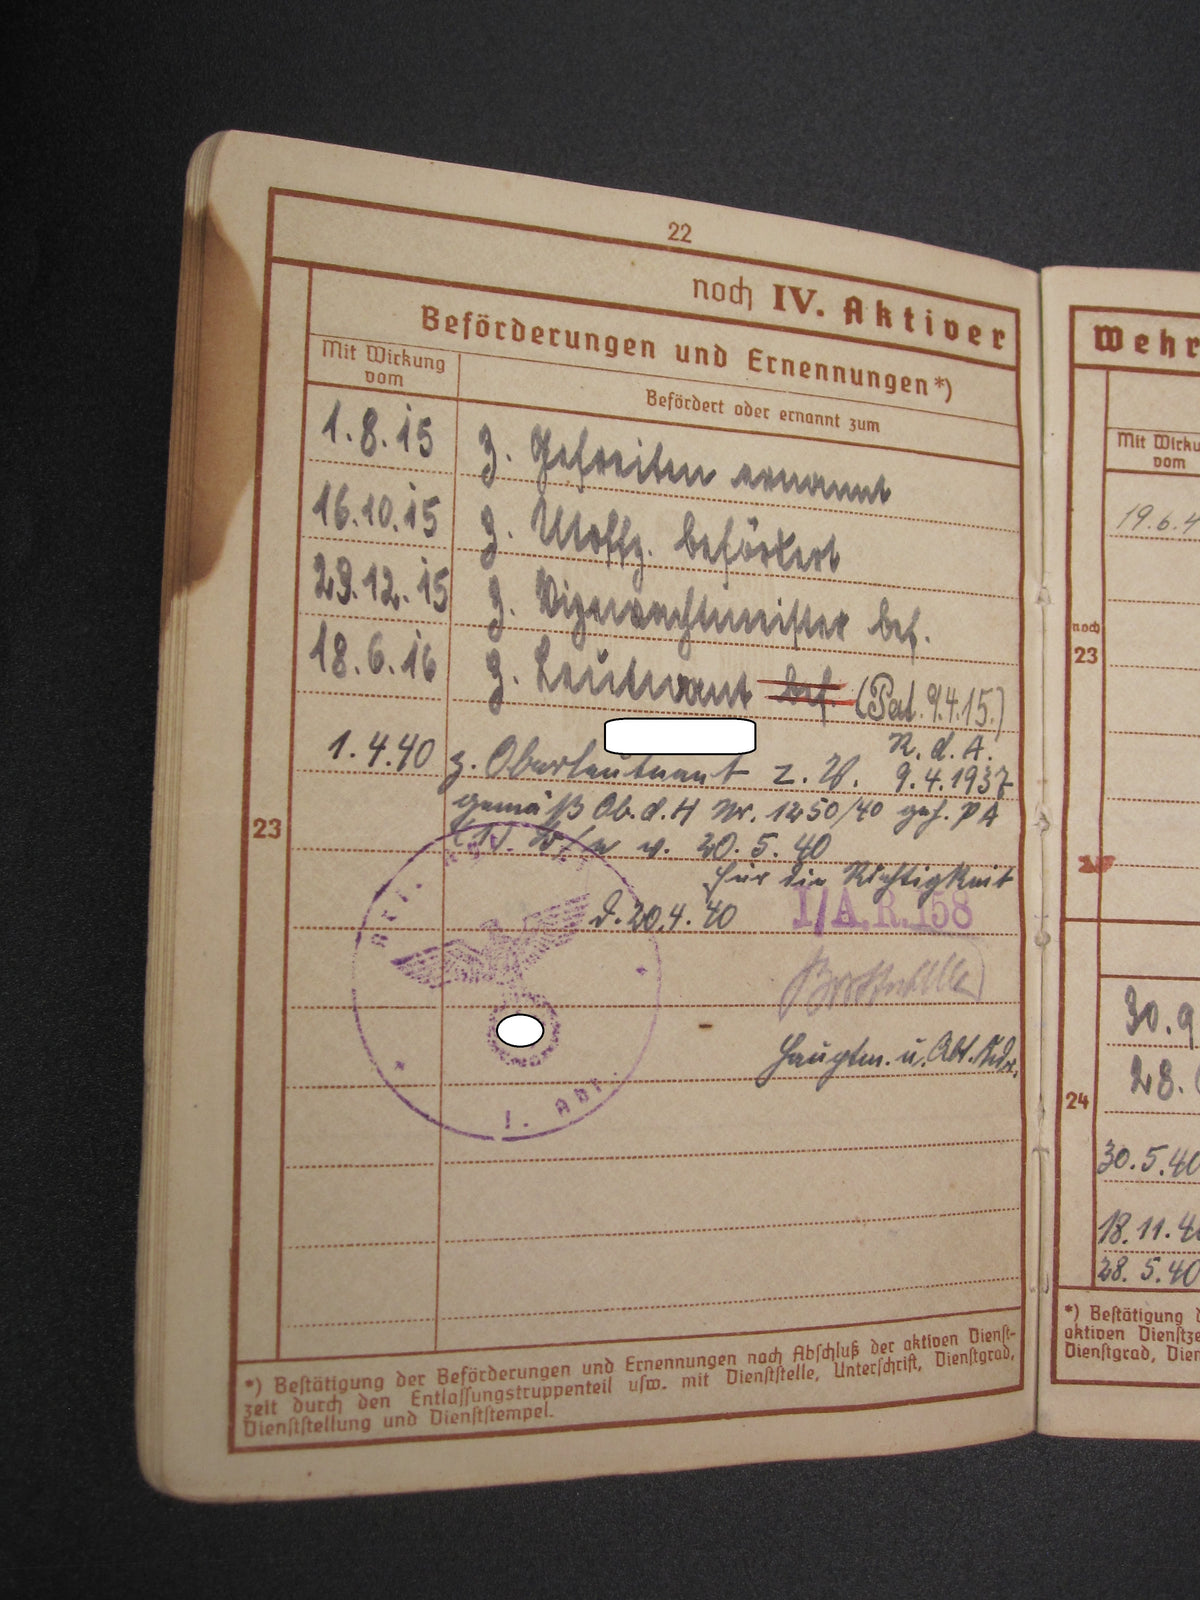 22
noch IV. Aktiver
Beförderungen und Ernennungen*)
Mit Wirkung
vom
Befördert oder ernannt zum
1.8.15 z. Gefreiten ernannt
16.10.15 z. Utoffz. befördert
29.12.15 z. Vizewachtmeister bef.
18.6.16 z. Leutnant bef. (Pat. 9.4.15.)
R. d. A.
1.4.40 z. Oberleutnant z. V. 9.4.1937
gemäß Ob. d. H Nr. 1250/40 geh. PA
v. 20.5.40
23
für die Richtigkeit
d. 20.4.40 I/A.R.158
Hauptm. u. Abt. Kdr.
I. Abt.
*) Bestätigung der Beförderungen und Ernennungen nach Abschluß der aktiven Dienst-
zeit durch den Entlassungstruppenteil usw. mit Dienststelle, Unterschrift, Dienstgrad,
Dienststellung und Dienststempel.
Wehr
Mit Wirku
vom
19.6.4
noch
23
30.9
28.
24
30.5.40
18.11.4
28.5.40
*) Bestätigung d
aktiven Dienstze
Dienstgrad, Dien